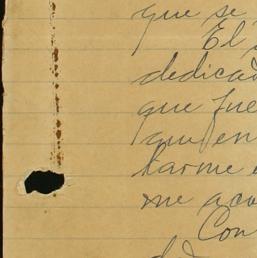 que se
El
dedica
que fue
que en
tarme
me aco
Con